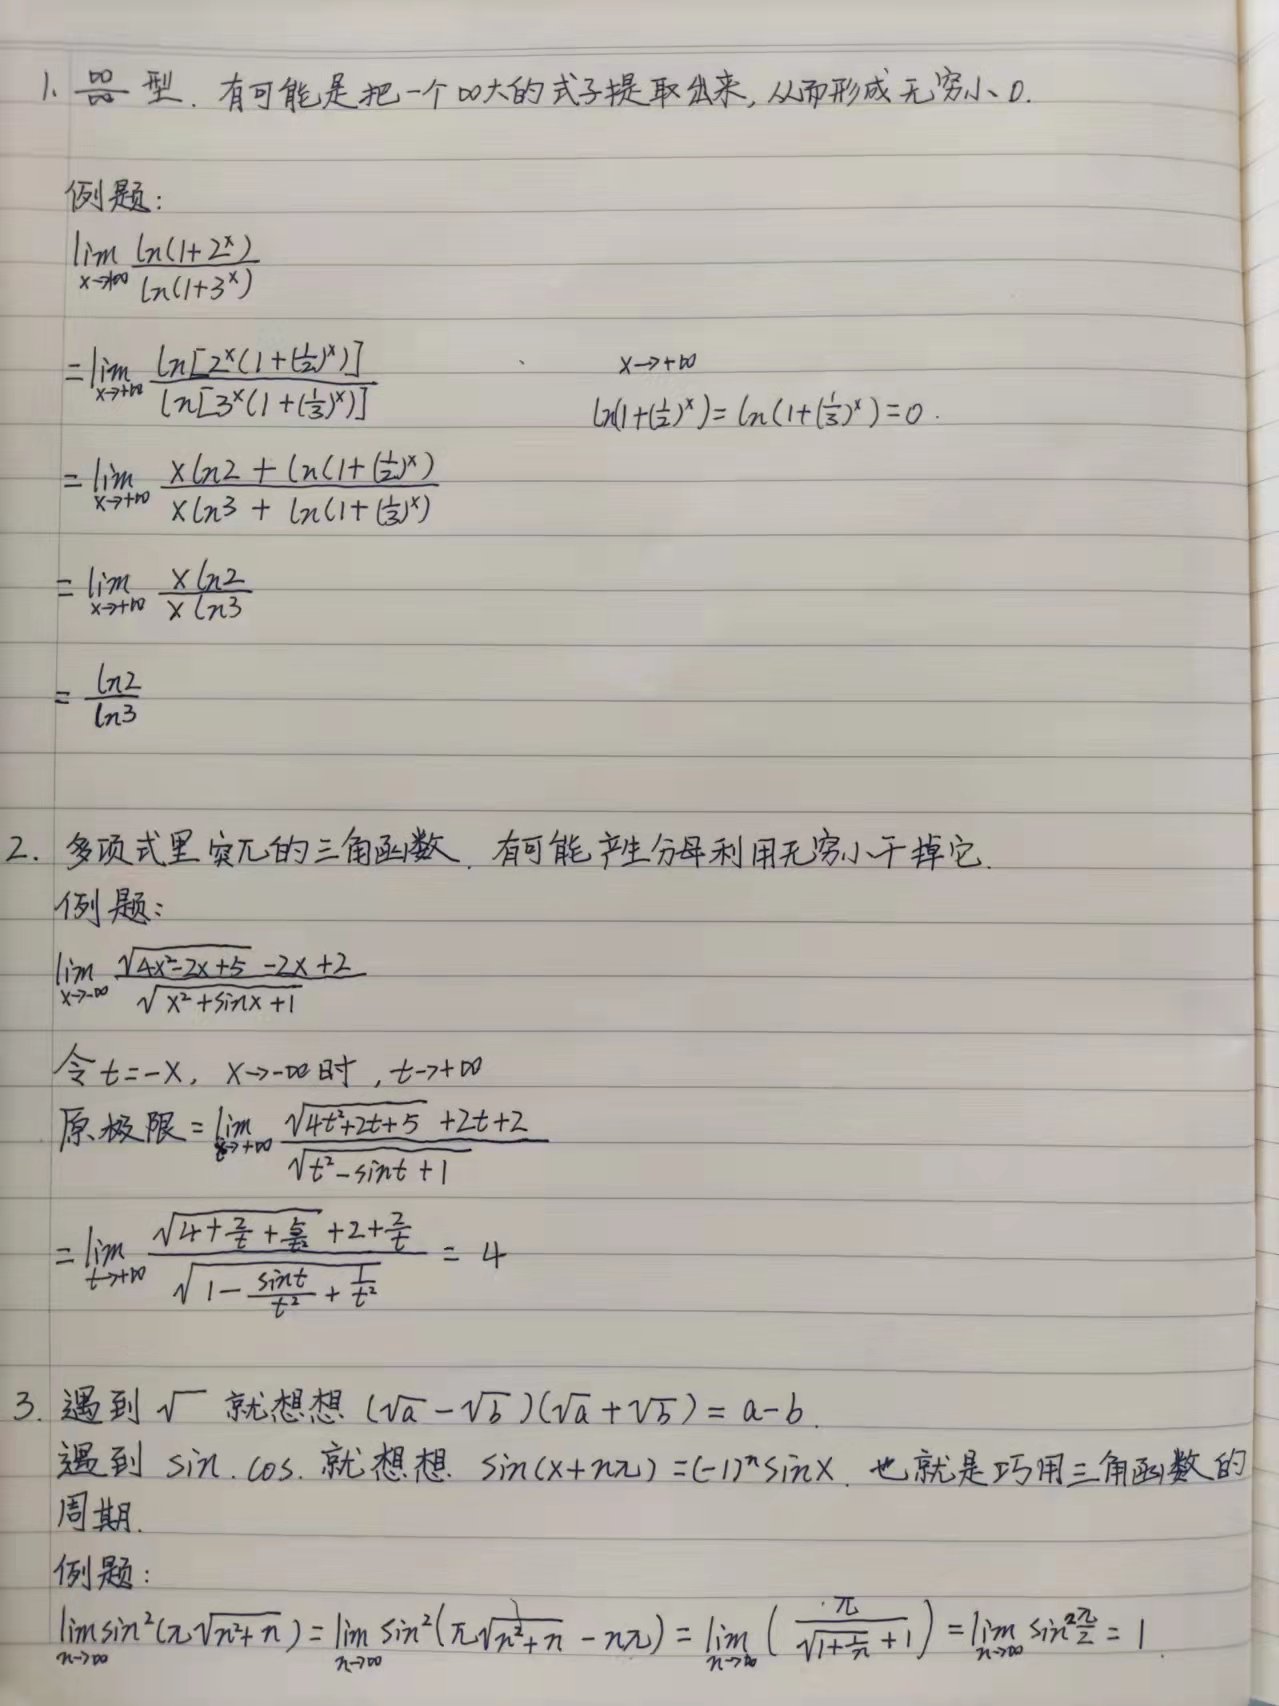 1. ∞/∞ 型. 有可能是把一个∞大的式子提取出来, 从而形成无穷小、0.
例题:
lim x→+∞ ln(1+2^x)/ln(1+3^x)
= lim x→+∞ ln[2^x(1+(1/2)^x)]/ln[3^x(1+(1/3)^x)]
x→+∞
ln(1+(1/2)^x) = ln(1+(1/3)^x) = 0.
= lim x→+∞ (xln2 + ln(1+(1/2)^x))/(xln3 + ln(1+(1/3)^x))
= lim x→+∞ xln2/xln3
= ln2/ln3
2. 多项式里突兀的三角函数. 有可能产生分母利用无穷小干掉它.
例题:
lim x→-∞ (√(4x²-2x+5) -2x+2)/√(x²+sinx+1)
令t=-x, x→-∞时, t→+∞
原极限 = lim t→+∞ (√(4t²+2t+5) +2t+2)/√(t²-sint+1)
= lim t→+∞ (√(4+2/t+5/t²) +2+2/t)/√(1-sint/t²+1/t²) = 4
3. 遇到√ 就想想 (√a-√b)(√a+√b) = a-b.
遇到 sin. cos. 就想想 sin(x+nπ) = (-1)^n sinx. 也就是巧用三角函数的
周期.
例题:
lim n→∞ sin²(π√(n²+n)) = lim n→∞ sin²(π√(n²+n) - nπ) = lim n→∞ (π/(√(1+1/n)+1)) = lim n→∞ sin² π/2 = 1.